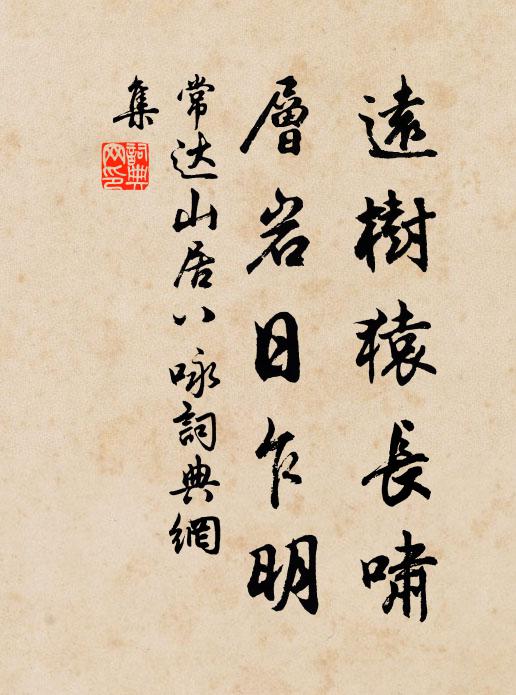 遠樹猿長嘯
層岩日乍明
常达山居八咏詞典網
集
詞典
网印